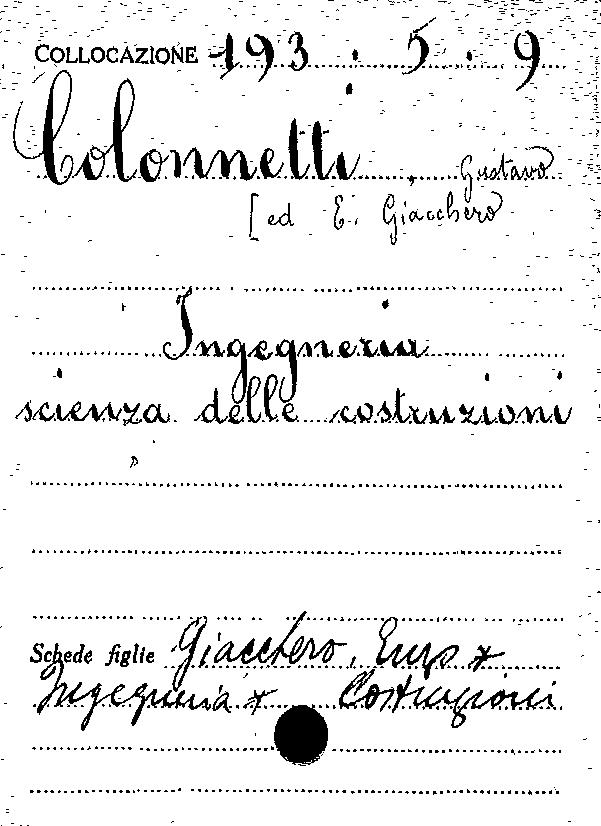 COLLOCAZIONE 193 . 5 . 9
Colonnetti, Gustavo
[ed E. Giacchero
Ingegneria
scienza delle costruzioni
Schede figlie Giacchero,
Ingegneria * Costruzioni